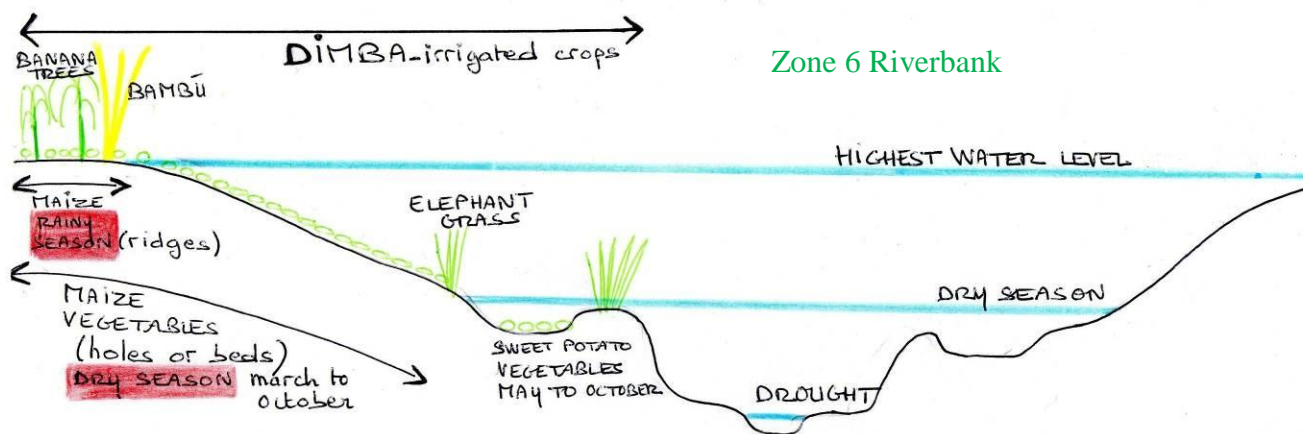 DIMBA-irrigated crops
Zone 6 Riverbank
BANANA
TREES
BAMBÚ
HIGHEST WATER LEVEL
MAIZE
RAINY
SEASON (ridges)
ELEPHANT
GRASS
DRY SEASON
MAIZE
VEGETABLES
(holes or beds)
DRY SEASON march to
october
SWEET POTATO
VEGETABLES
MAY TO OCTOBER
DROUGHT